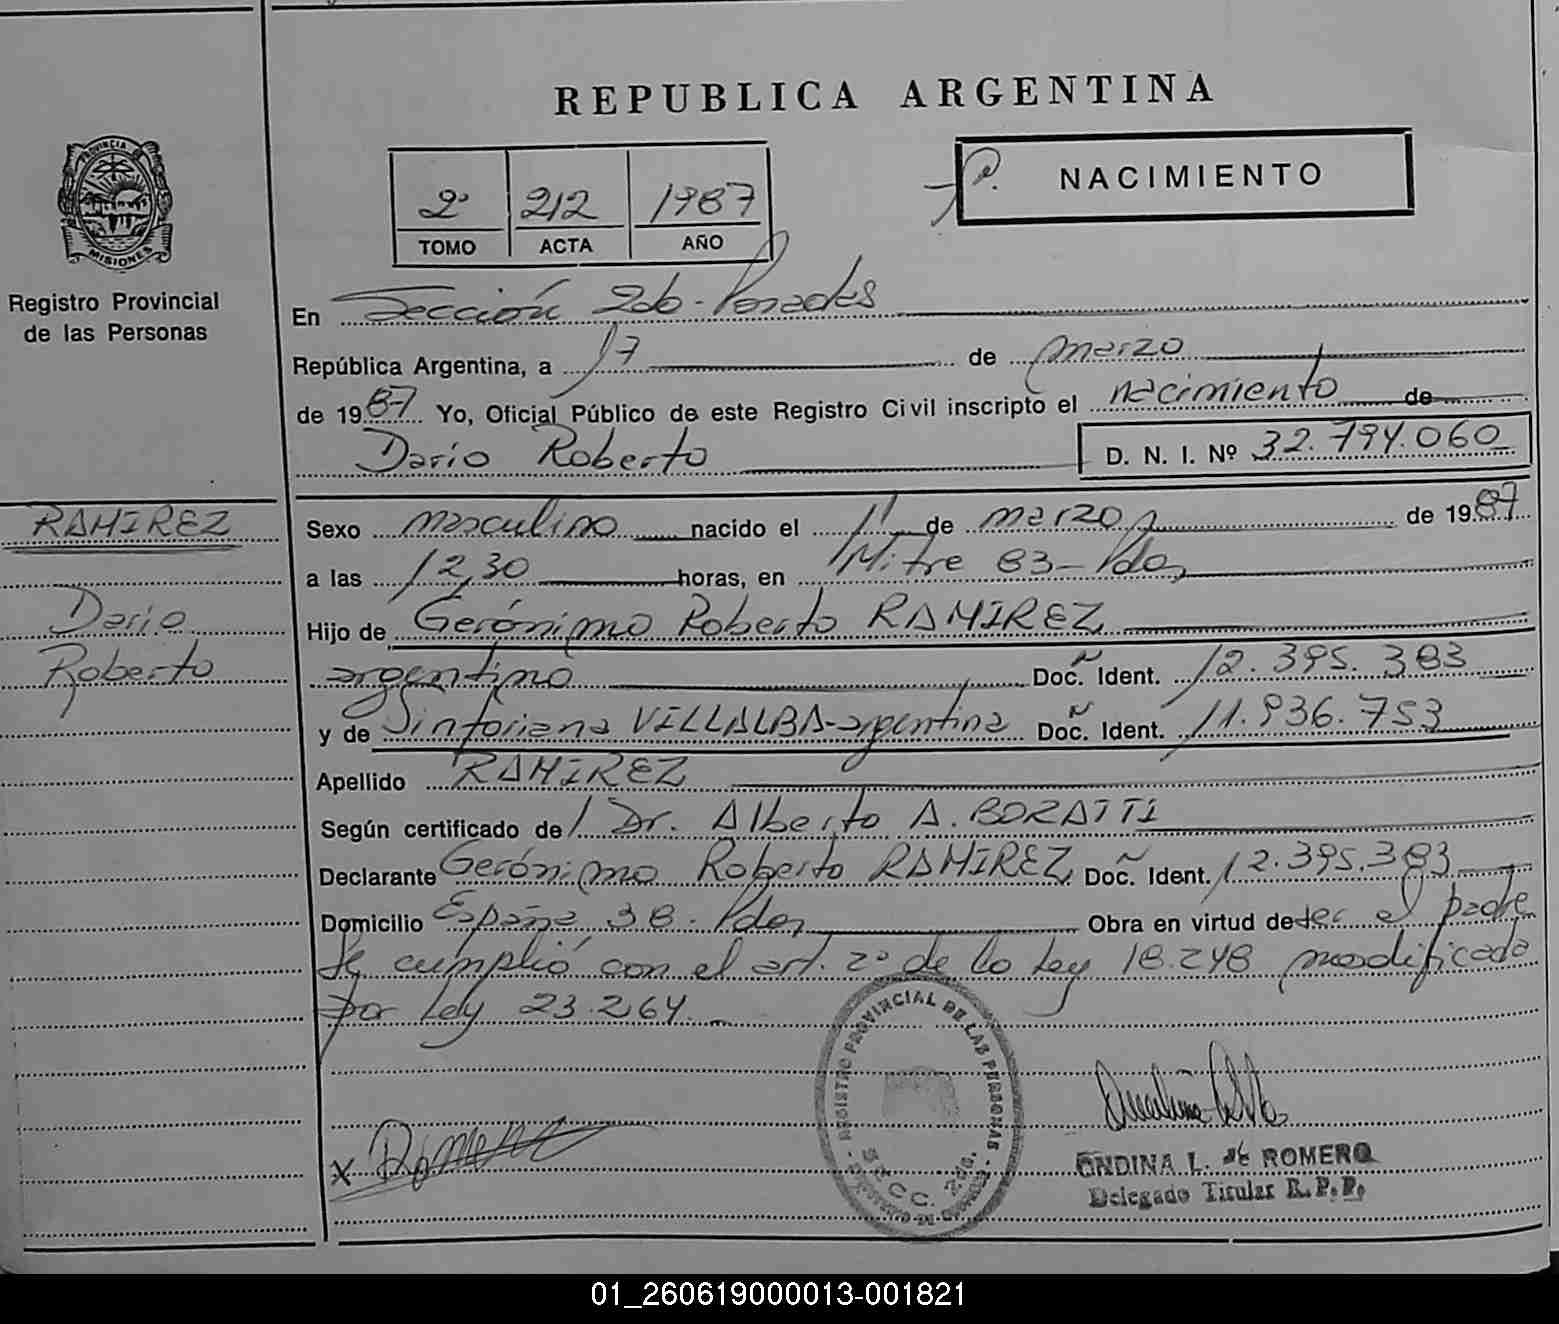 REPUBLICA ARGENTINA
PROVINCIA DE
MISIONES
Registro Provincial
de las Personas
2º 212 1987
TOMO ACTA AÑO
P. NACIMIENTO
En Sección 2da-Posadas
República Argentina, a 17 de marzo
de 1987 Yo, Oficial Público de este Registro Civil inscripto el nacimiento de
Dario Roberto D. N. I. Nº 32.794.060
RAMIREZ
Dario
Roberto
Sexo masculino nacido el 11 de marzo de 1987
a las 12,30 horas, en Mitre 83-Pdas
Hijo de Gerónimo Roberto RAMIREZ
argentino Doc. Ident. 12.395.383
y de Sinforiana VILLALBA-argentina Doc. Ident. 11.936.753
Apellido RAMIREZ
Según certificado de Dr. Alberto A. BORATTI
Declarante Gerónimo Roberto RAMIREZ Doc. Ident. 12.395.383
Domicilio España 38-Pdas Obra en virtud de ser el padre
Se cumplió con el art. 2º de la Ley 18.248 modificada
por Ley 23.264.
REGISTRO PROVINCIAL DE LAS PERSONAS
SECC. 2da.
x
ONDINA L. de ROMERO
Delegado Titular R.P.P.
01_260619000013-001821